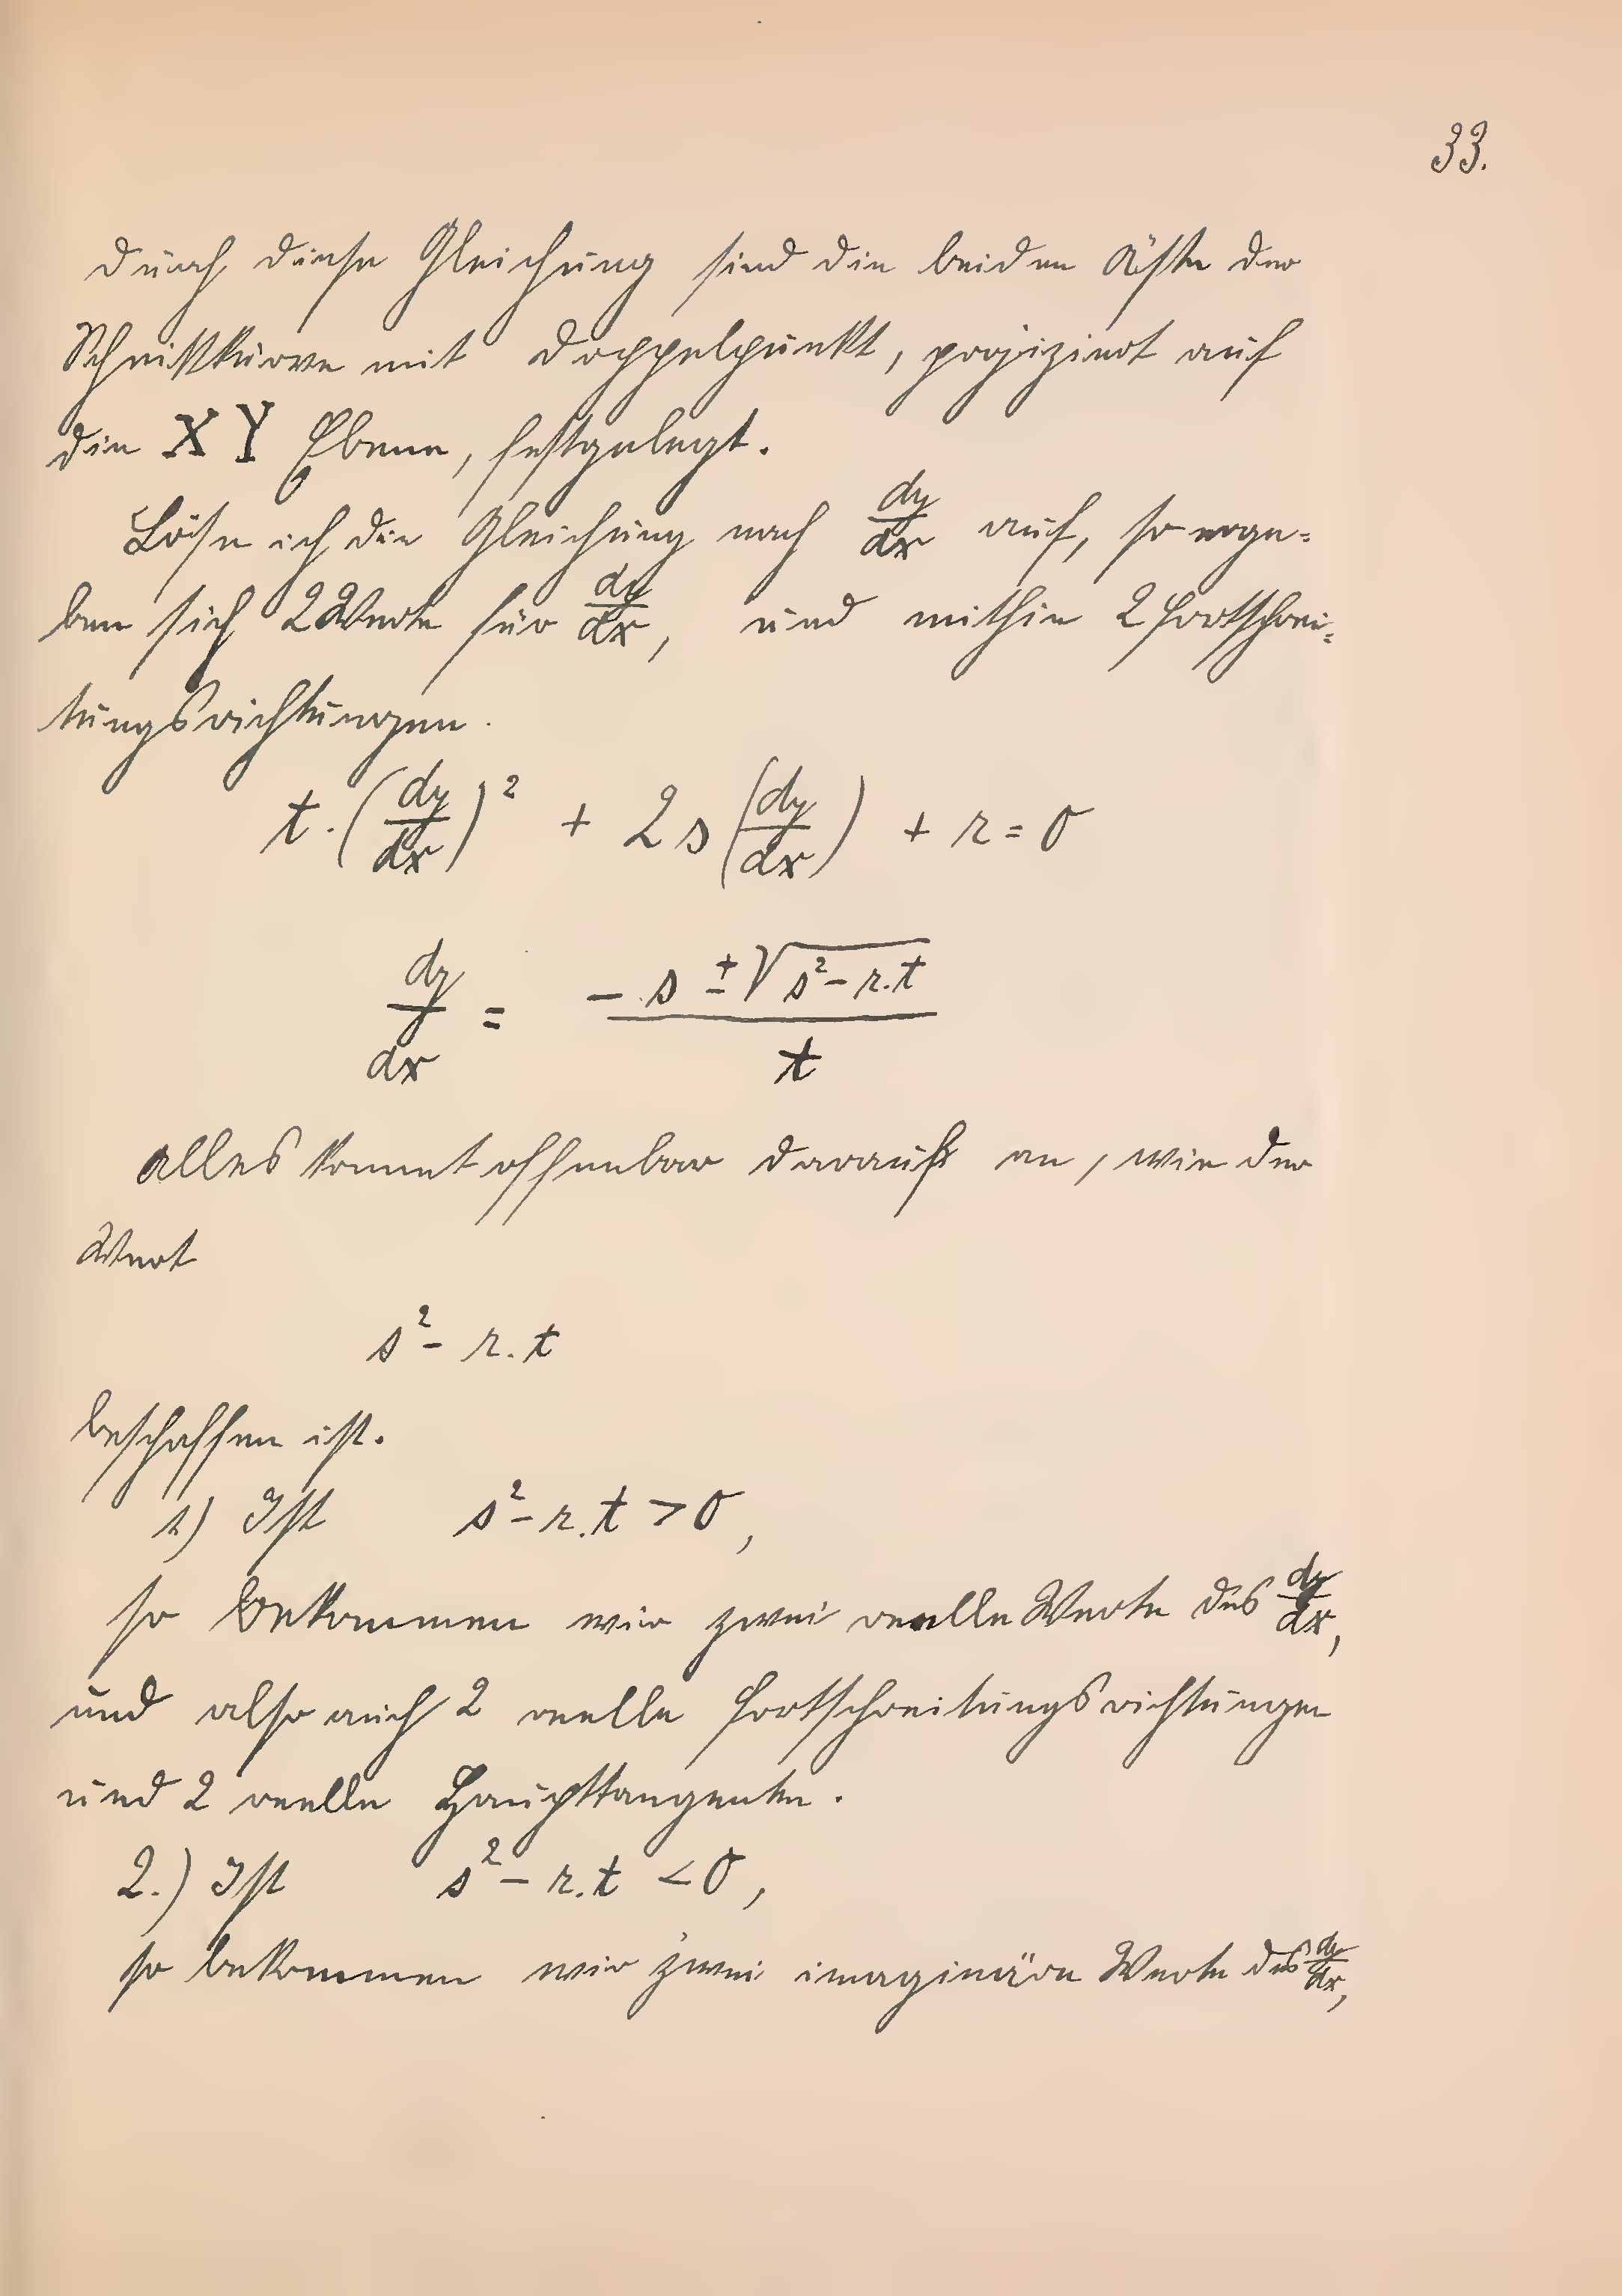 33.
durch diese Gleichung sind die beiden Äste der
Schnittkurve mit Doppelpunkt, projiziert auf
die X Y Ebene, festgelegt.
Löse ich die Gleichung nach dy/dx auf, so erge=
ben sich 2 Werte für dy/dx, und mithin 2 Fortschrei=
tungsrichtungen.
t.(dy/dx)² + 2s(dy/dx) + r = 0
dy/dx = (-s ± √(s²-r.t))/t
Alles kommt offenbar darauf an, wie der
Wert
s² - r.t
beschaffen ist.
1) Ist s² - r.t > 0,
so bekommen wir zwei reelle Werte des dy/dx,
und also auch 2 reelle Fortschreitungsrichtungen
und 2 reelle Haupttangenten.
2.) Ist s² - r.t < 0,
so bekommen wir zwei imaginäre Werte des dy/dx,